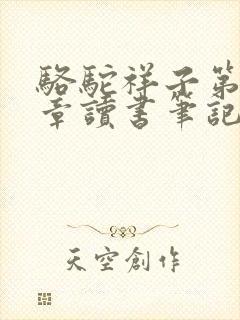 駱駝祥子第
章讀書筆記
天空創作